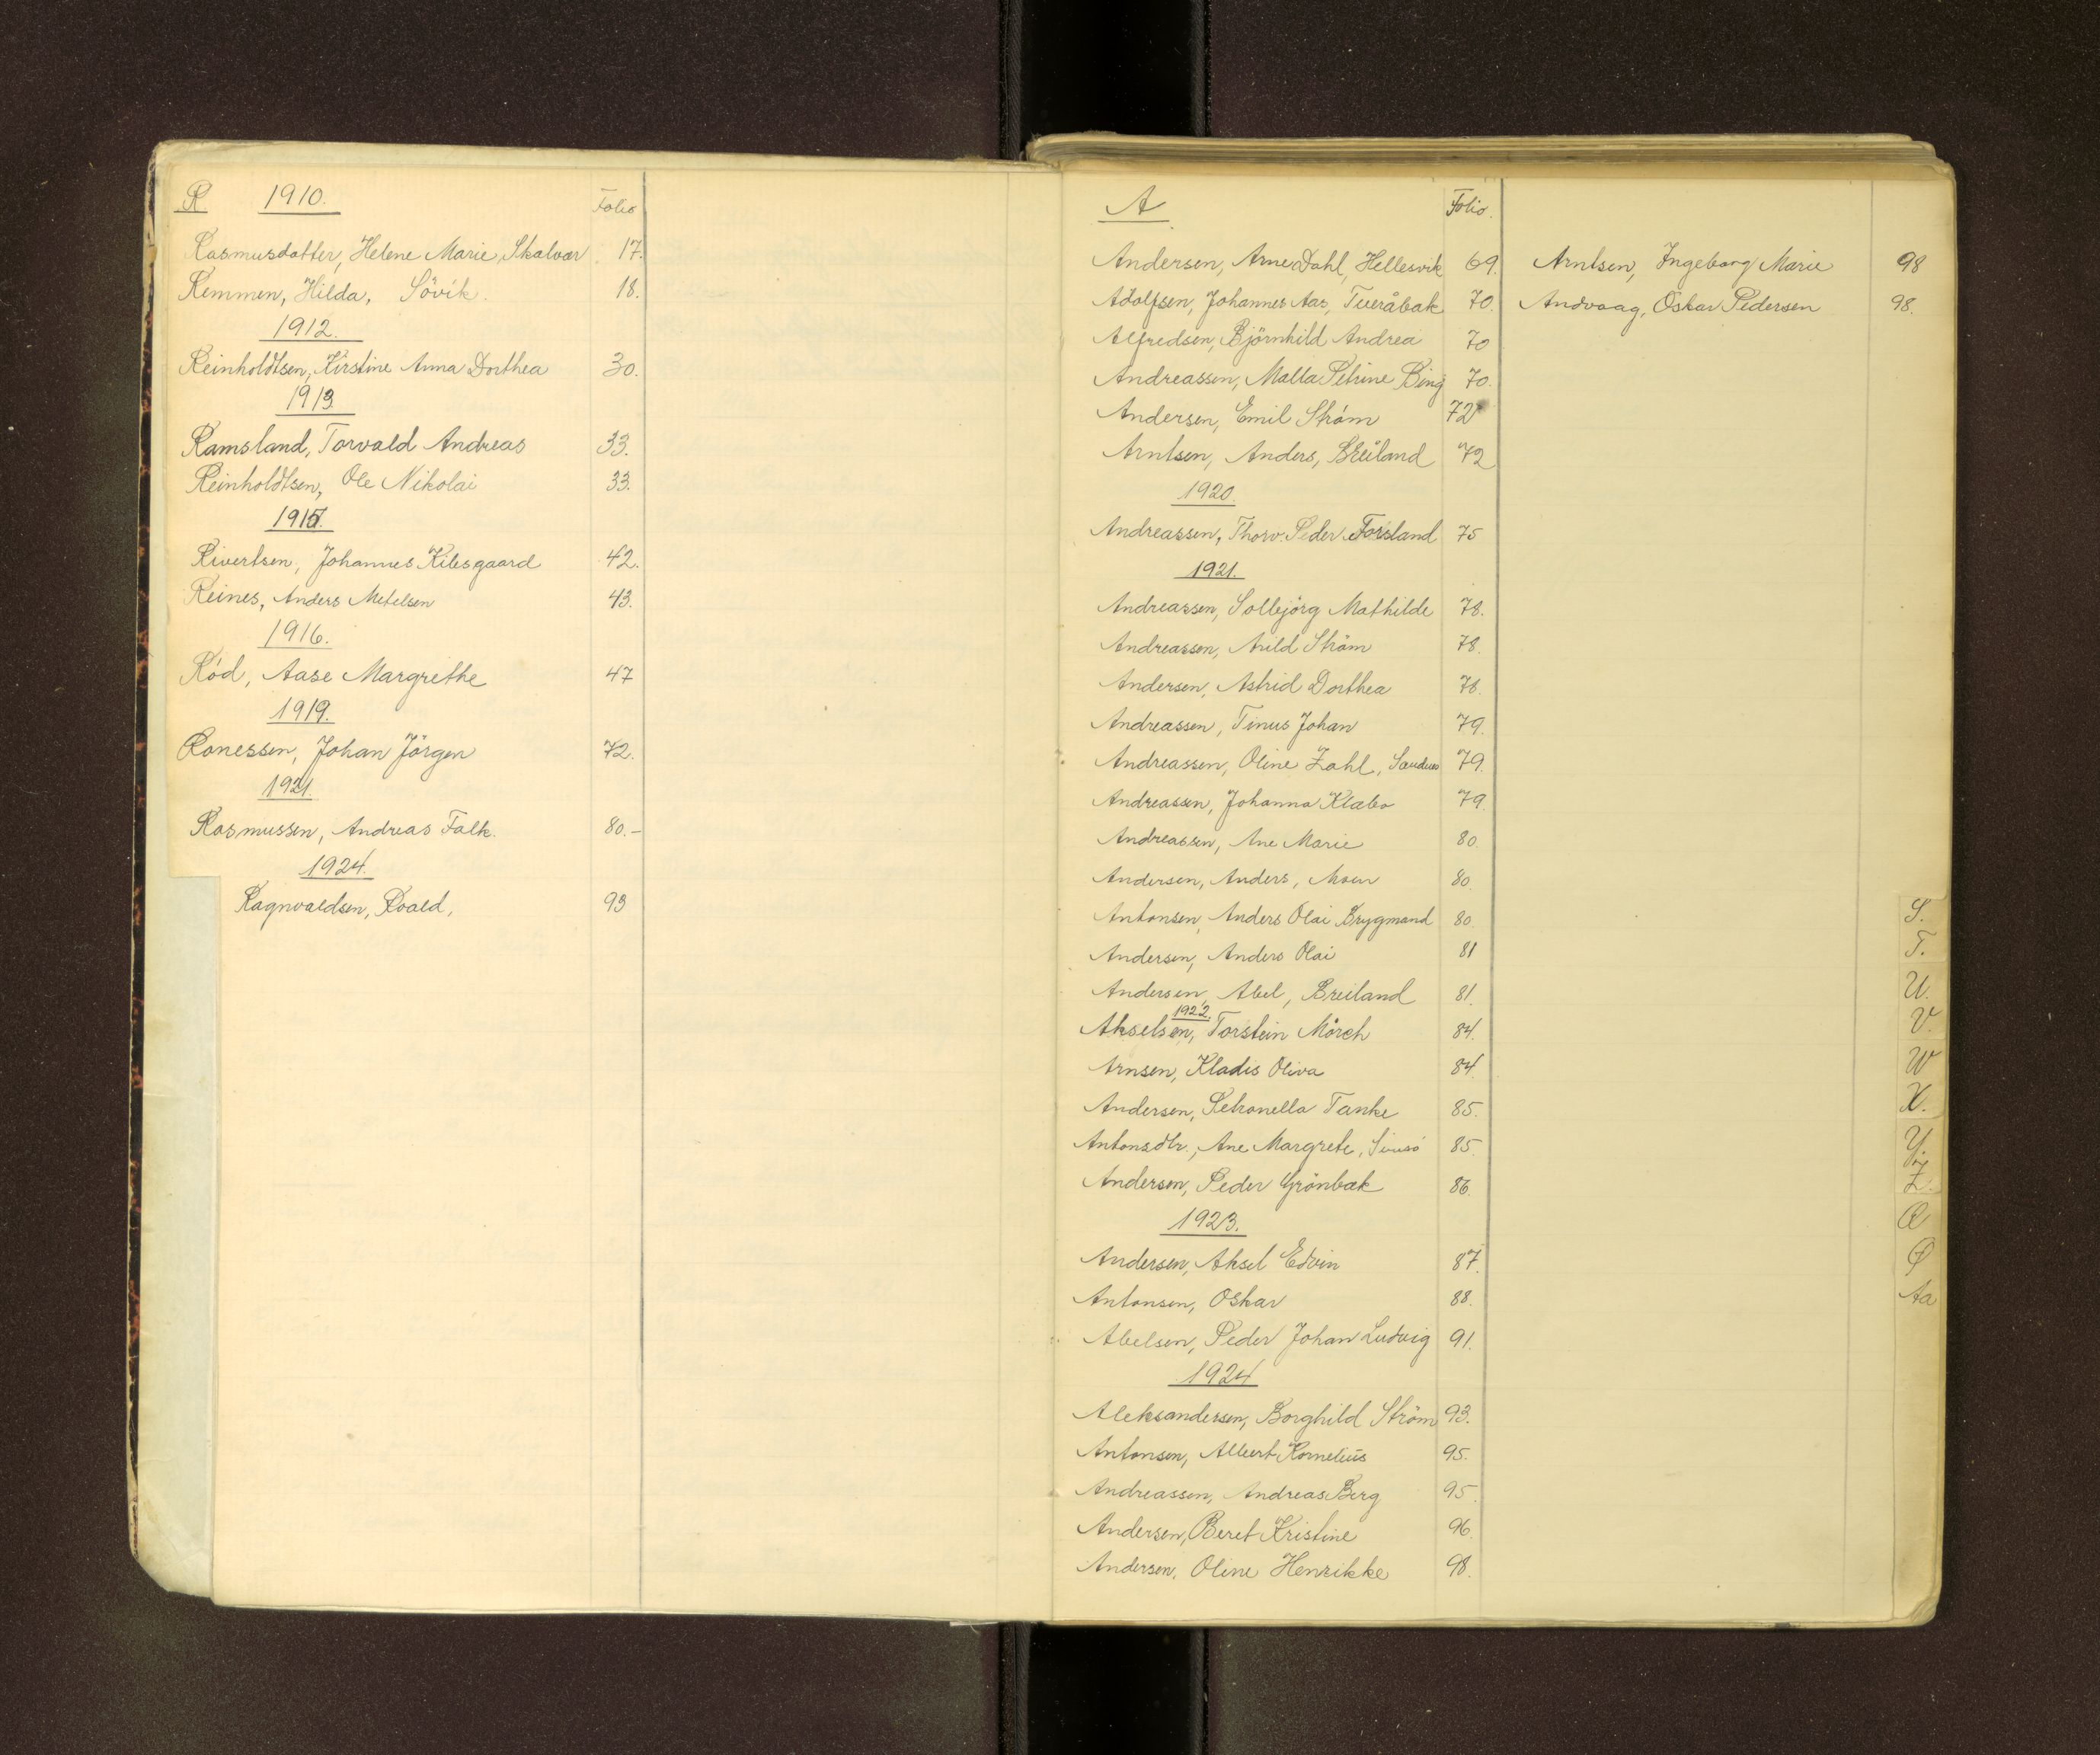 R 1910. Folio
Rasmusdatter, Helene Marie, Skalvær 17.
Remmen, Hilda, Sövik. 18.
1912.
Reinholdtsen, Kirstine Anna Dorthea 30.
1913
Ramsland, Torvald Andreas 33.
Reinholdtsen, Ole Nikolai 33.
1915.
Rivertsen, Johannes Kilesgaard 42.
Reines, Anders Metelsen 43.
1916.
Röd, Aase Margrethe 47
1919.
Ronessen, Johan Jörgen 72.
1921.
Rasmussen, Andreas Falk. 80.-
1924.
Ragnvaldsen, Roald, 93
A Folio.
Andersen, Arne Dahl, Hellesvik 69.
Adolfsen, Johannes Aas, Tveråbak 70.
Alfredsen, Björnhild Andrea 70
Andreassen, Malla Petrine Bing 70.
Andersen, Emil Ström 72
Arntsen, Anders, Breiland 72
1920.
Andreassen, Thorv. Peder Forsland 75
1921.
Andreassen, Solbjörg Mathilde 78.
Andreassen, Arild Ström 78.
Andersen, Astrid Dorthea 78.
Andreassen, Tinus Johan 79.
Andreassen, Oline Zahl, 79.
Andreassen, Johanna Klæbo 79.
Andreassen, Ane Marie 80.
Andersen, Anders, Moen 80.
Antonsen, Anders Olai Brygmand 80.
Andersen, Anders Olai 81
Andersen, Abel, Breiland 81.
1922.
Akselsen, Torstein Mörch 84.
Arnsen, Kladis Oliva 84.
Andersen, Petronella Tanke 85.
Antonsdtr., Ane Margrete, 85.
Andersen, Peder Grönbæk 86.
1923.
Andersen, Aksel Edvin 87.
Antonsen, Oskar 88.
Abelsen, Peder Johan Ludvig 91.
1924
Aleksandersen, Borghild Ström 93.
Antonsen, Albert Kornelius 95.
Andreassen, Andreas Berg 95.
Andersen, Beret Kristine 96.
Andersen, Oline Henrikke 98.
Arntsen, Ingeborg Marie 98
Andvaag, Oskar Pedersen 98.
S.
T.
U.
V.
W
X.
Y
Z.
Æ
Ø
Aa